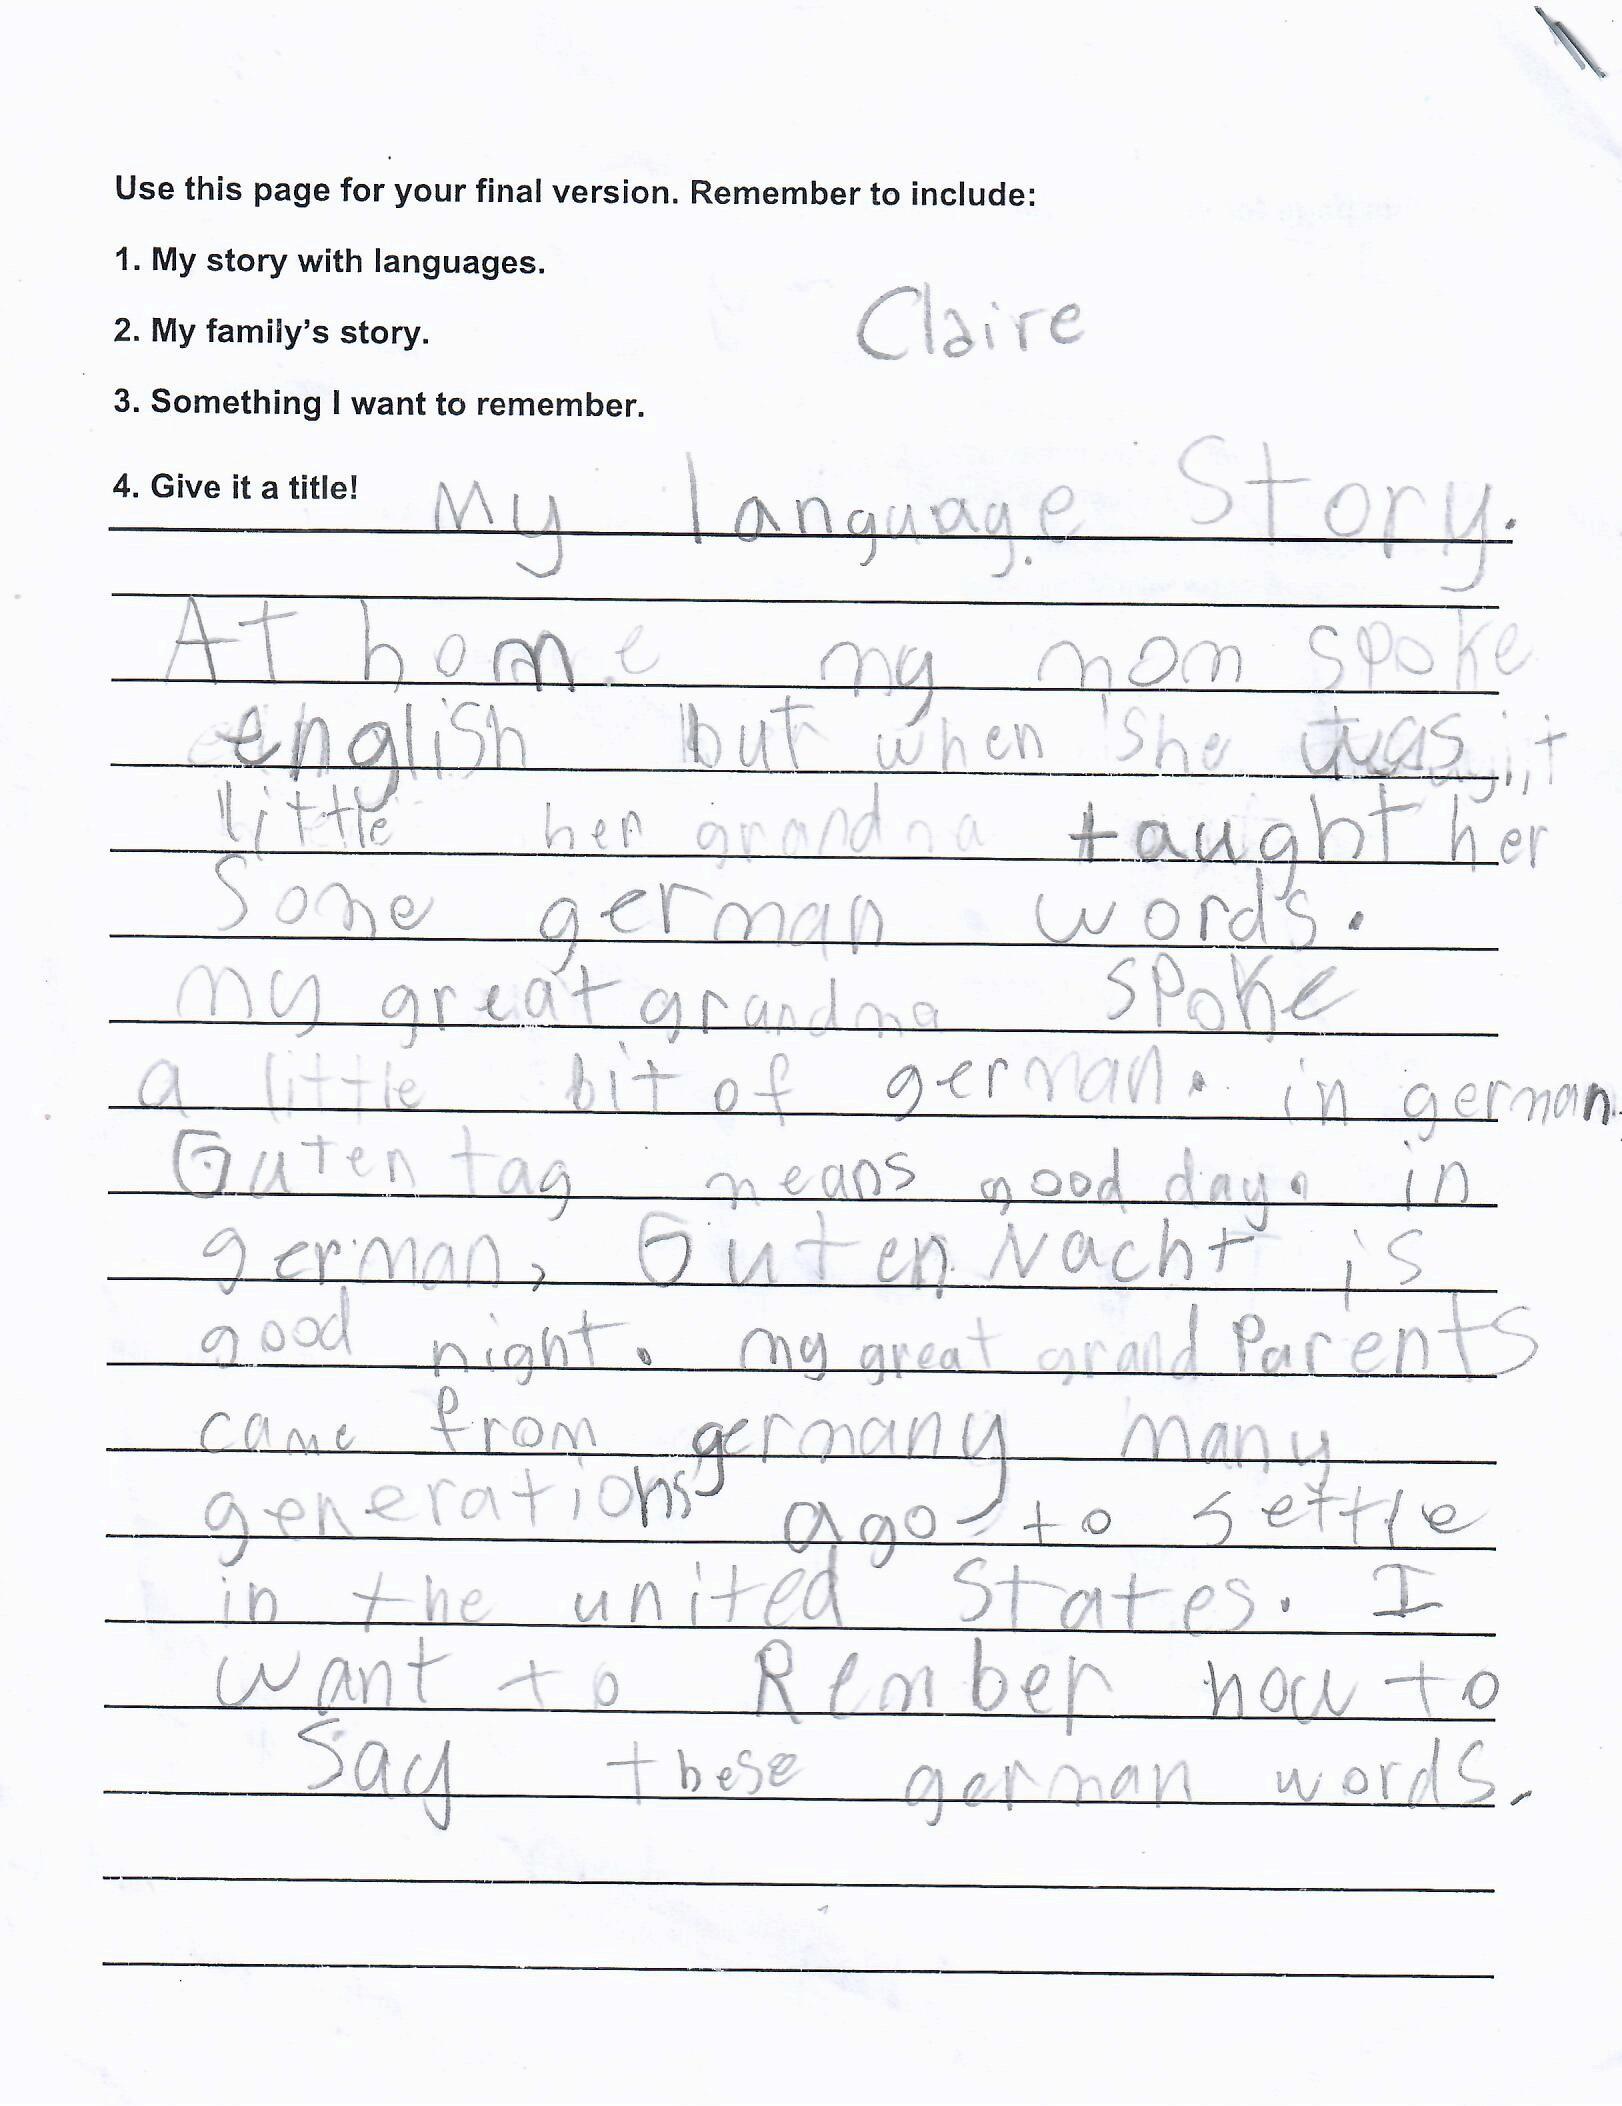 Use this page for your final version. Remember to include:
1. My story with languages.
2. My family's story.
Claire
3. Something I want to remember.
4. Give it a title!
My language Story.
At home my mom spoke
english but when she was
little her grandma taught her
Some german words.
my great grandma spoke
a little bit of german. in german
Guten tag means good day. in
german, Guten Nacht is
good night. my great grand Parents
came from germany many
generations ago to settle
in the united States. I
want to Rember how to
Say these german words.